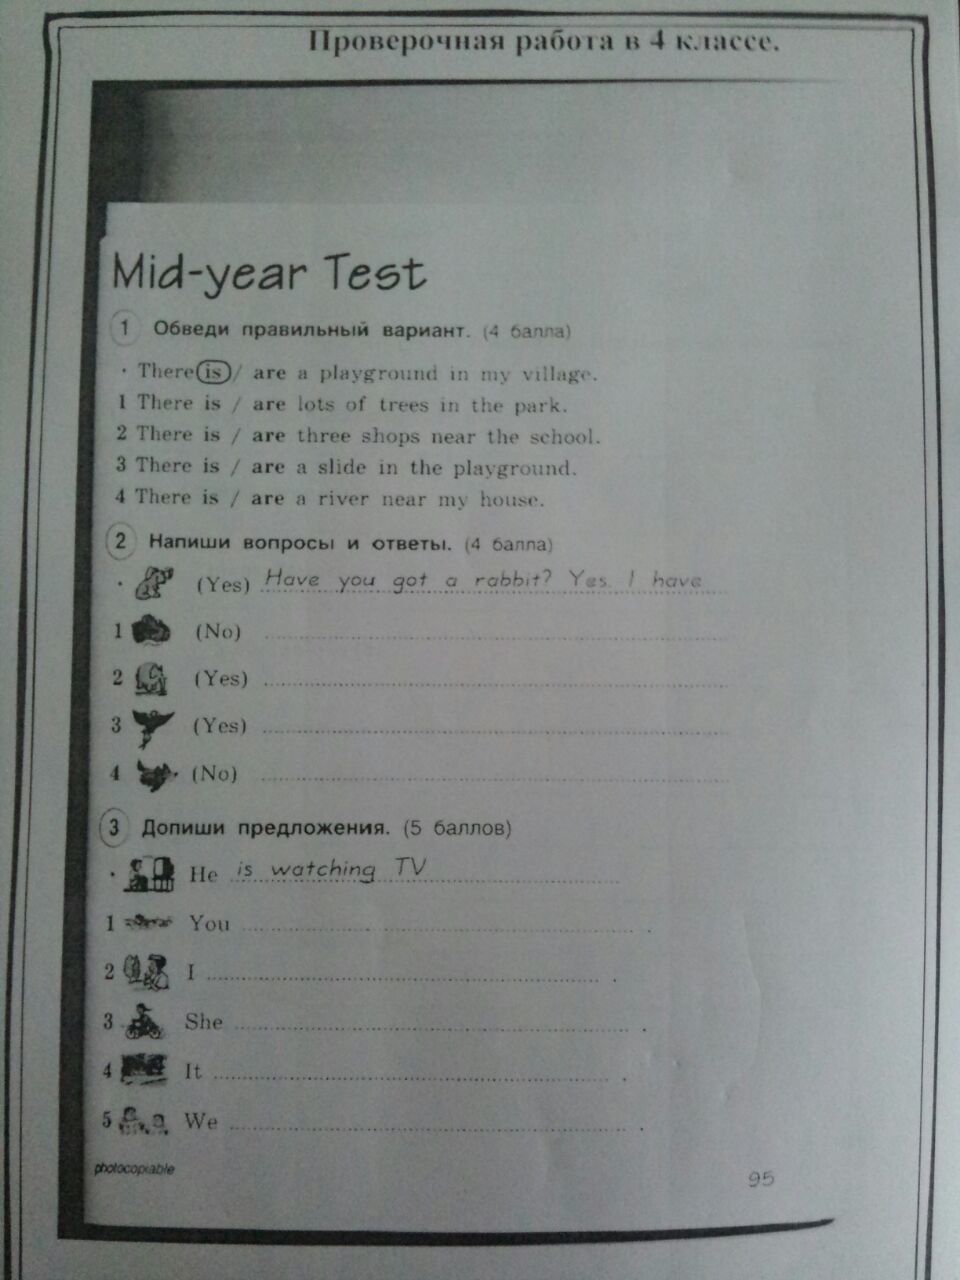 Проверочная работа в 4 классе.
Mid-year Test
1 Обведи правильный вариант. (4 балла)
· There is / are a playground in my village.
1 There is / are lots of trees in the park.
2 There is / are three shops near the school.
3 There is / are a slide in the playground.
4 There is / are a river near my house.
2 Напиши вопросы и ответы. (4 балла)
· (Yes) Have you got a rabbit? Yes. I have
1 (No)
2 (Yes)
3 (Yes)
4 (No)
3 Допиши предложения. (5 баллов)
· He is watching TV
1 You .
2 I .
3 She .
4 It .
5 We .
photocopiable
95